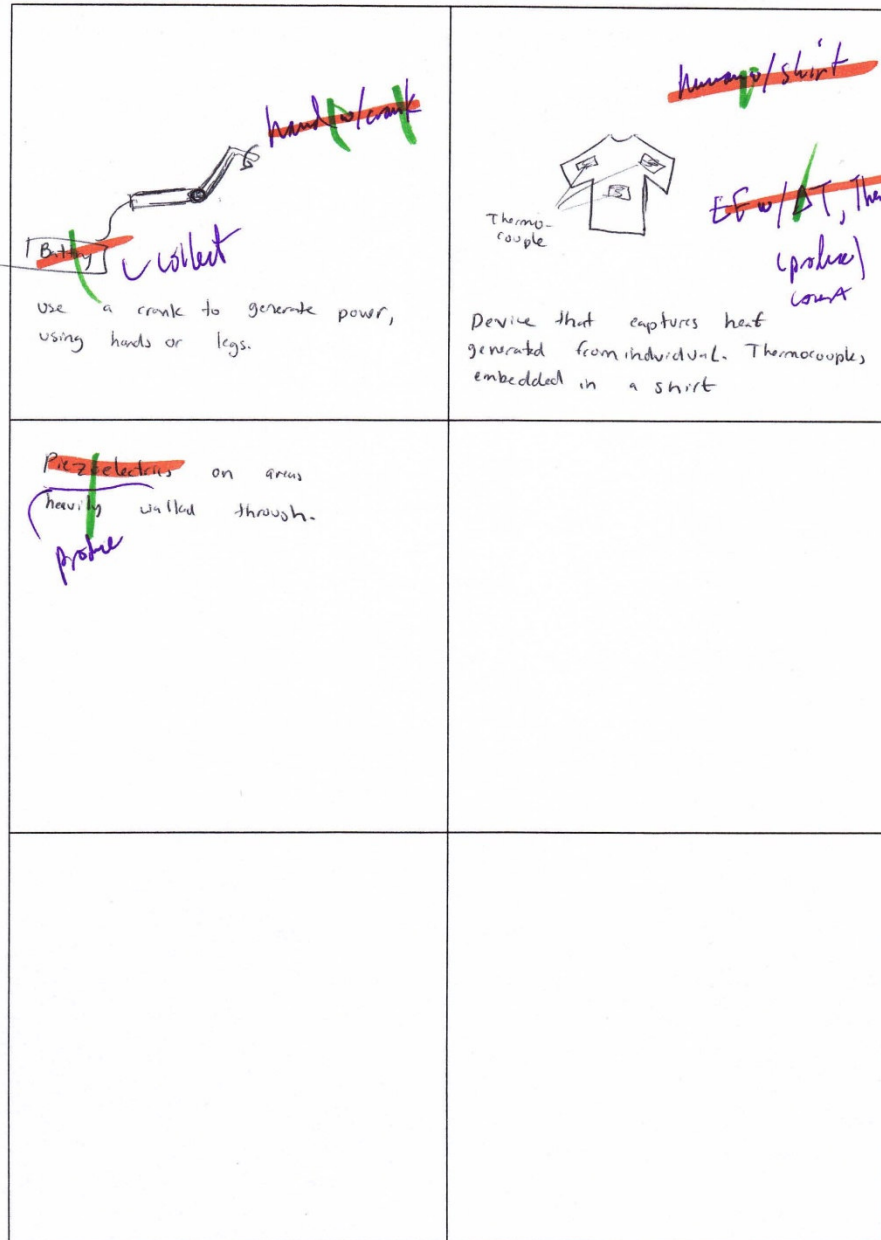 hand w/crank
Battry
collect
use a crank to generate power,
using hands or legs.
human w/shirt
Thermo-
couple
EF w/ ΔT, The
(produce)
Device that captures heat
generated from individual. Thermocouples
embedded in a shirt
Piezoelectrics on areas
heavily walked through.
produce